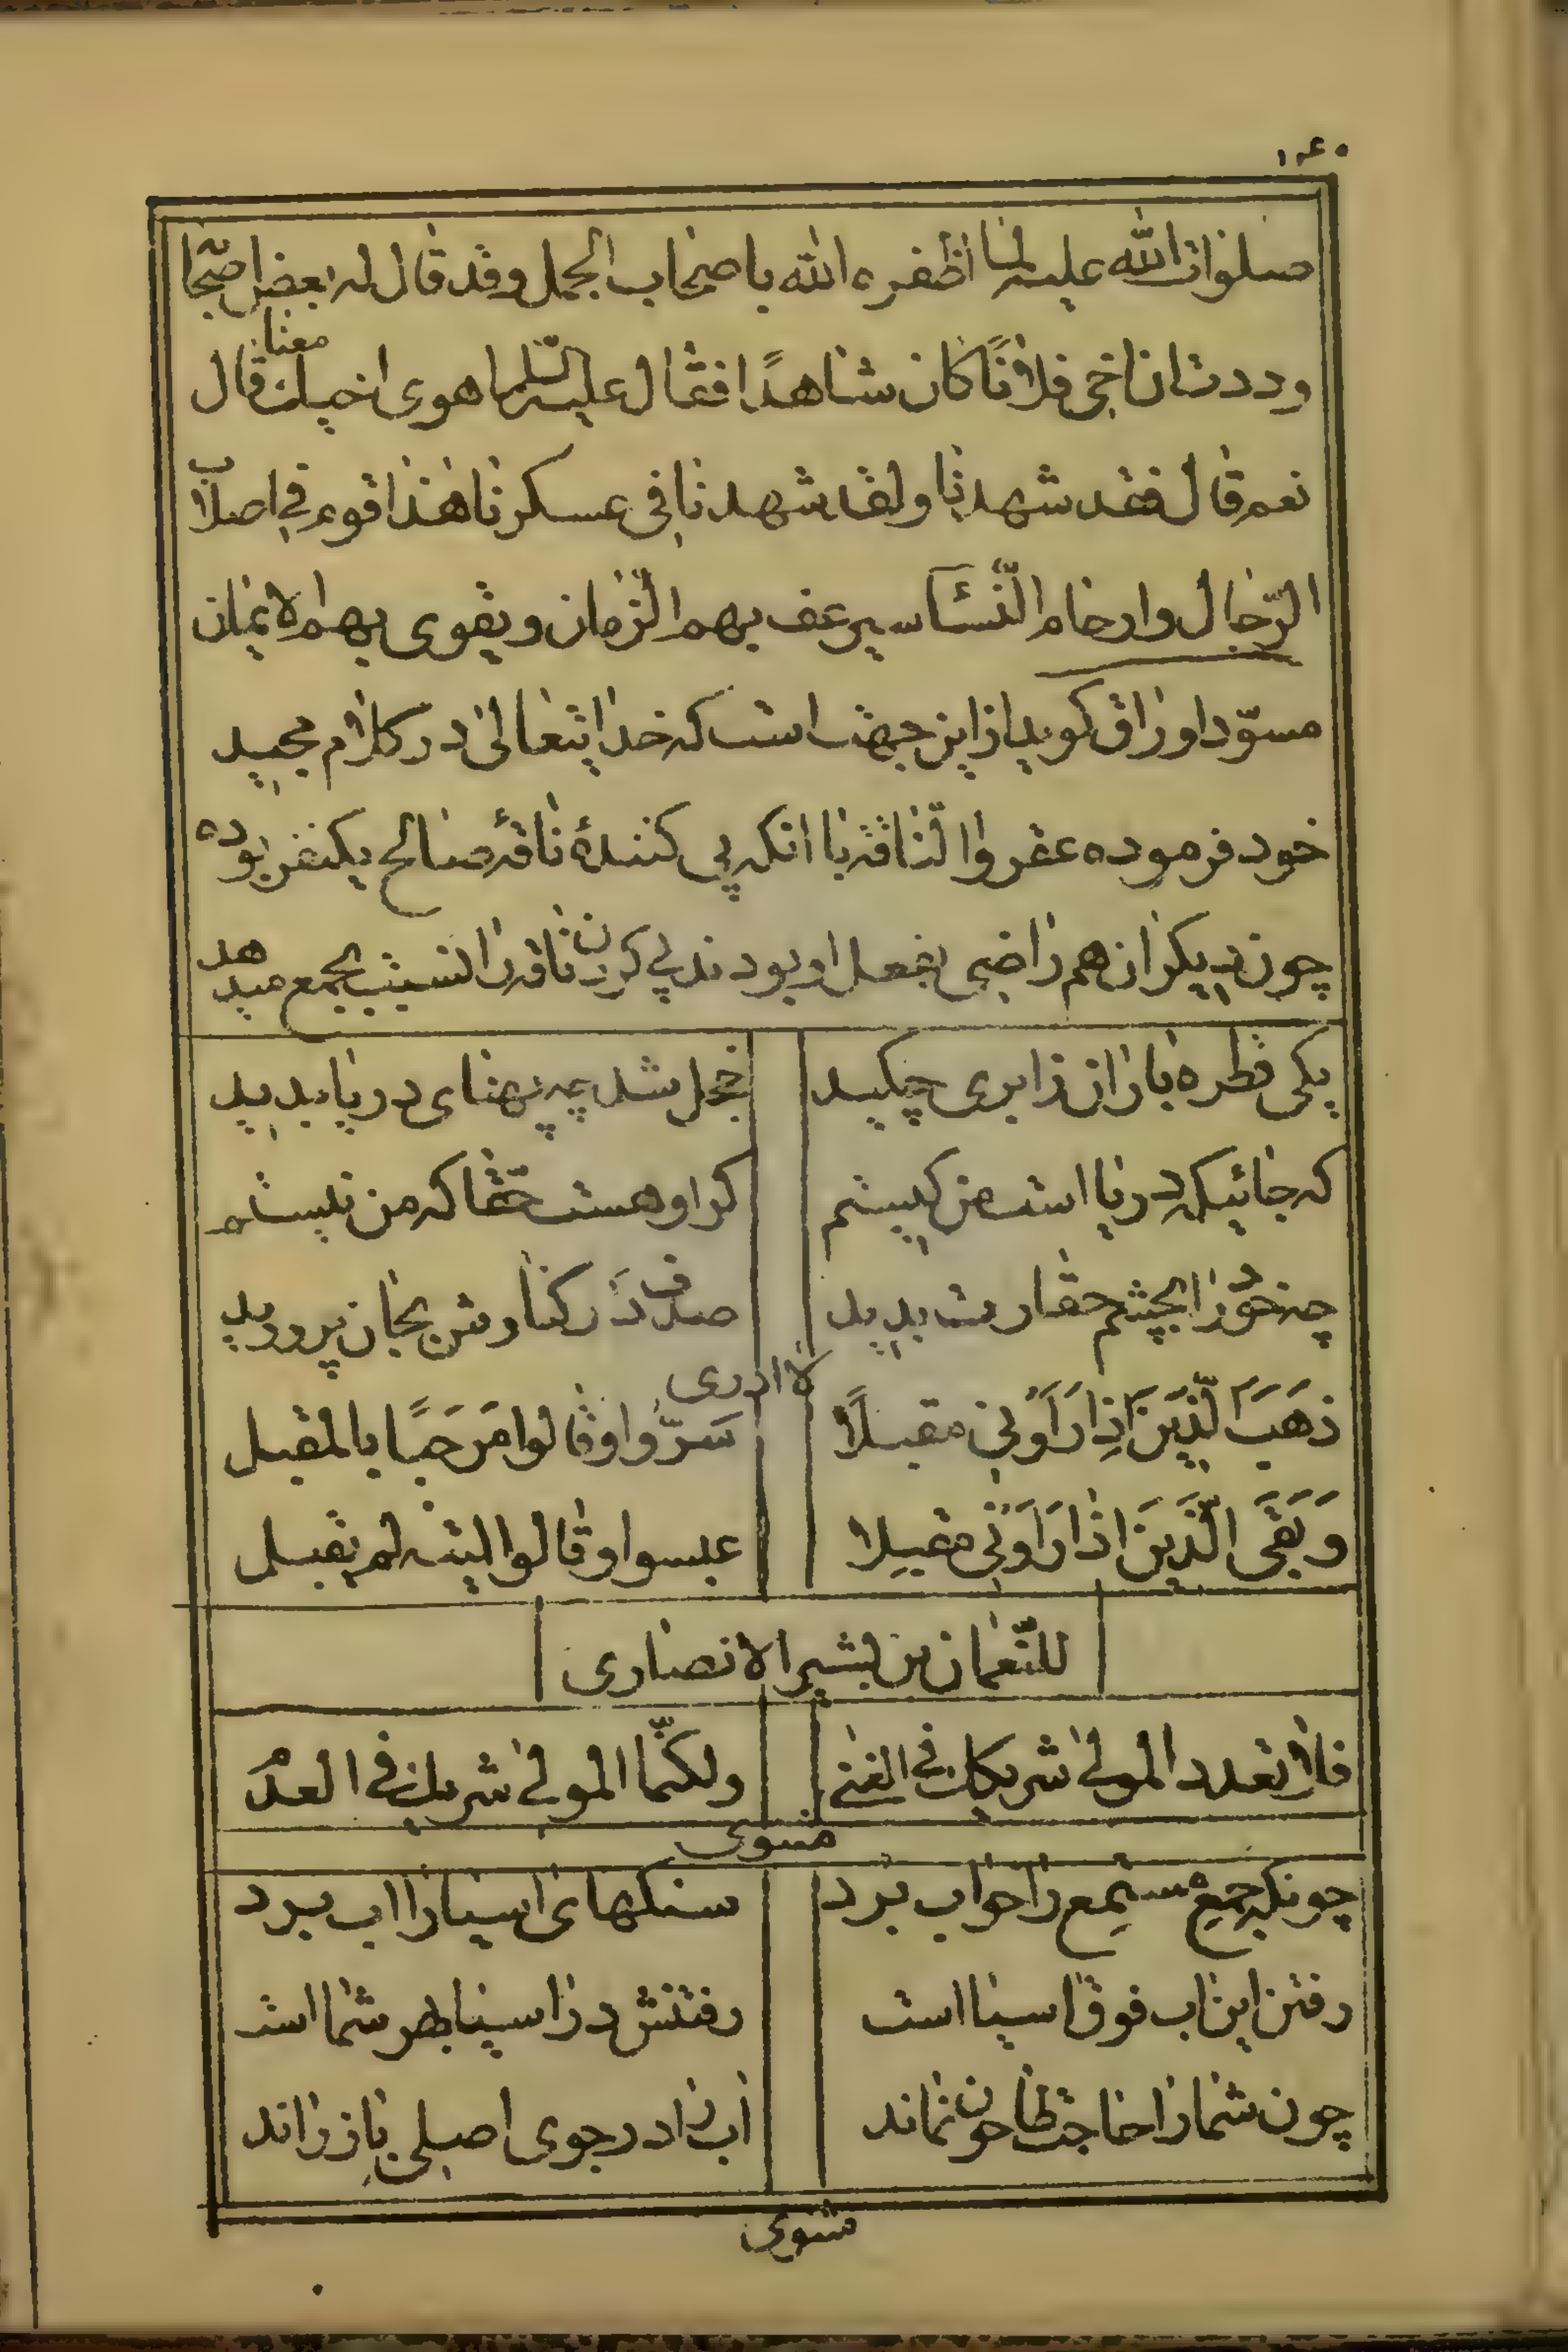 ۱۴۰
صلوات الله علیه لما اظفره الله باصحاب الجمل وقد قال له بعض اصحا
وددت ان اخی فلاناً کان شاهدًا فقال علیه السّلم اهوی اخیک معنا قال
نعم قال فقد شهدنا ولقد شهدنا فی عسکرنا هذا قوم فی اصلاب
الرّجال وارحام النّسآء سیرعف بهم الزّمان ویقوی بهم الایمان
مسوّد اوراق کوید از این جهت است که خدایتعالی در کلام مجید
خود فرموده عقروا النّاقه با انکه پی کنندهٔ ناقهٔ صالح یکنفر بوده
چون دیکران هم راضی بفعل او بودند پی کردن ناقه را نسبت بجمع میدهد
یکی قطره باران ز ابری چکید
خجل شد چه پهنای دریا بدید
که جائیکه دریا است من کیستم
کر او هست حقّا که من نیستم
چه خود را بچشم حقارت بدید
صدف در کنارش بجان پرورید
لا ادری
ذَهَبَ الَّذینَ اِذا رَاَونی مقبلاً
سَرّوا وقالوا مَرحَبًا بالمقبل
وَبَقَی الَّذینَ اذا رَاَونی مقبلا
عبسوا وقالوا لیته لم یقبل
للنّعمان بن بشیر الانصاری
فلا تعدد المولی شریکک فی الغنی
ولکنّما المولی شریک فی العدم
مثنوی
چونکه جمع مستمع را خواب برد
سنکهای اسیا را اب برد
رفتن این اب فوق اسیا است
رفتنش در اسیا بهر شما است
چون شما را حاجت طاحون نماند
اب را در جوی اصلی باز راند
مثنوی